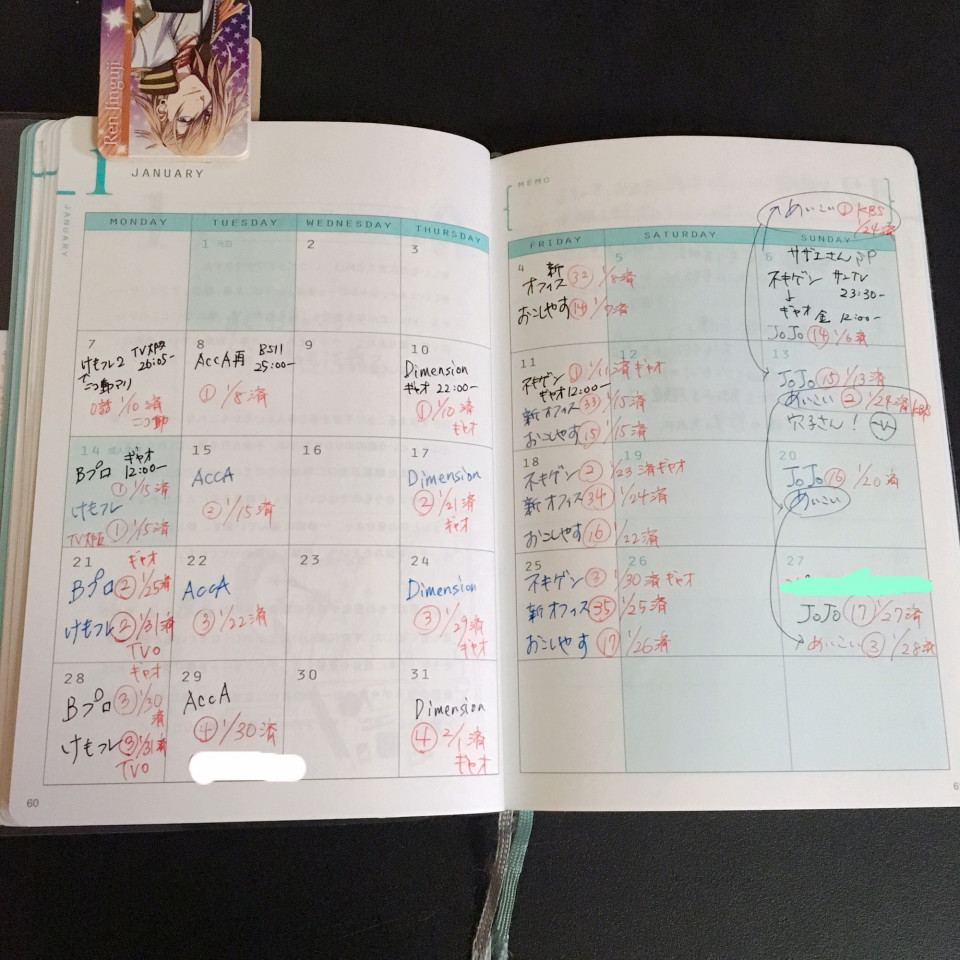 Ren Jinguji
1
JANUARY
JANUARY
MONDAY
TUESDAY
WEDNESDAY
THURSDAY
1 元日
2
3
7
けもフレ2 TV大阪 26:05-
0話 1/10 済
ニコ動
8
AccA再 BS11 25:00-
① 1/8 済
9
10
Dimension
ギャオ 22:00-
① 1/10 済
ギャオ
14
Bプロ ギャオ 12:00-
① 1/15 済
けもフレ
TV大阪 ① 1/15 済
15
AccA
② 1/15 済
16
17
Dimension
② 1/21 済
ギャオ
21
ギャオ
Bプロ ② 1/25 済
けもフレ ② 1/31 済
TVO
22
AccA
③ 1/22 済
23
24
Dimension
③ 1/29 済
ギャオ
28
ギャオ
Bプロ ③ 1/30 済
けもフレ ③ 1/31 済
TVO
29
AccA
④ 1/30 済
30
31
Dimension
④ 2/1 済
ギャオ
60
MEMO
あいこい ① KBS
1/24 済
FRIDAY
SATURDAY
SUNDAY
4
新
オフィス ㉜ 1/8 済
おこしやす ⑭
5
6
サザエさん
ネキゲン サンTV
↓ 23:30-
ギャオ 金 12:00-
JoJo ⑭ 1/6 済
11
ネキゲン ① 1/11 済 ギャオ
ギャオ 12:00-
新オフィス ㉝ 1/15 済
おこしやす ⑮ 1/15 済
12
13
JoJo ⑮ 1/13 済
あいこい ② 1/24 済 KBS
穴子さん!
18
ネキゲン ② 1/23 済 ギャオ
新オフィス ㉞ 1/24 済
おこしやす ⑯ 1/22 済
19
20
JoJo ⑯ 1/20 済
あいこい
25
ネキゲン ③ 1/30 済 ギャオ
新オフィス ㉟ 1/25 済
おこしやす ⑰ 1/26 済
26
27
JoJo ⑰ 1/27 済
あいこい ③ 1/28 済